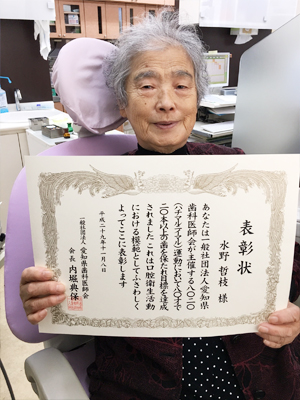 表彰状
水野 哲枝 様
あなたは一般社団法人愛知県
歯科医師会が主催する八〇二〇
(ハチマルニイマル)運動において八〇才で
二〇本以上の歯を保たれ目標を達成
されました これは口腔衛生活動
における模範としてふさわしく
よってここに表彰します
平成二十九年十一月八日
一般社団法人 愛知県歯科医師会
会長 内堀典保